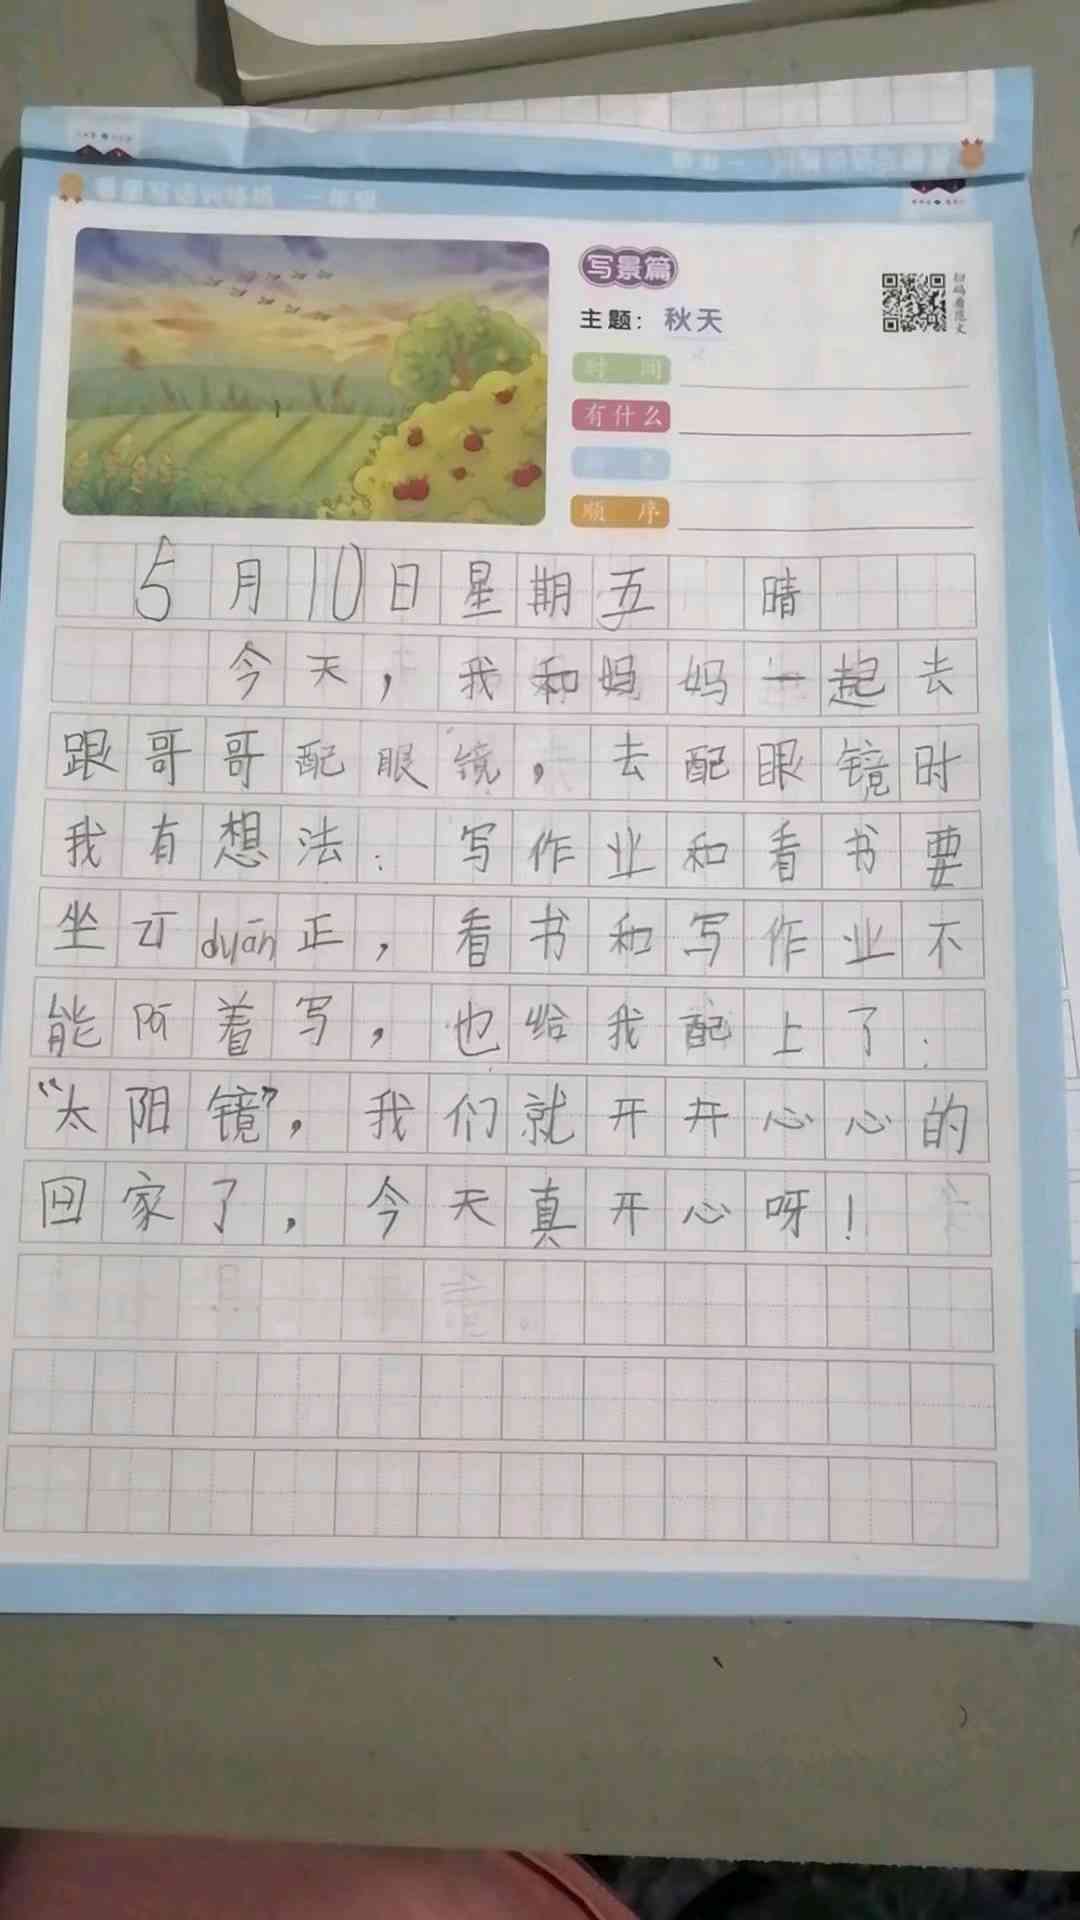 看图写话训练纸 一年级
写景篇
主题：秋天
扫码看范文
时 间
有什么
顺 序
5月10日星期五 晴
今天，我和妈妈一起去
跟哥哥配眼镜，去配眼镜时
我有想法：写作业和看书要
坐duān正，看书和写作业不
能阿着写，也给我配上了：
“太阳镜”，我们就开开心心的
回家了，今天真开心呀！